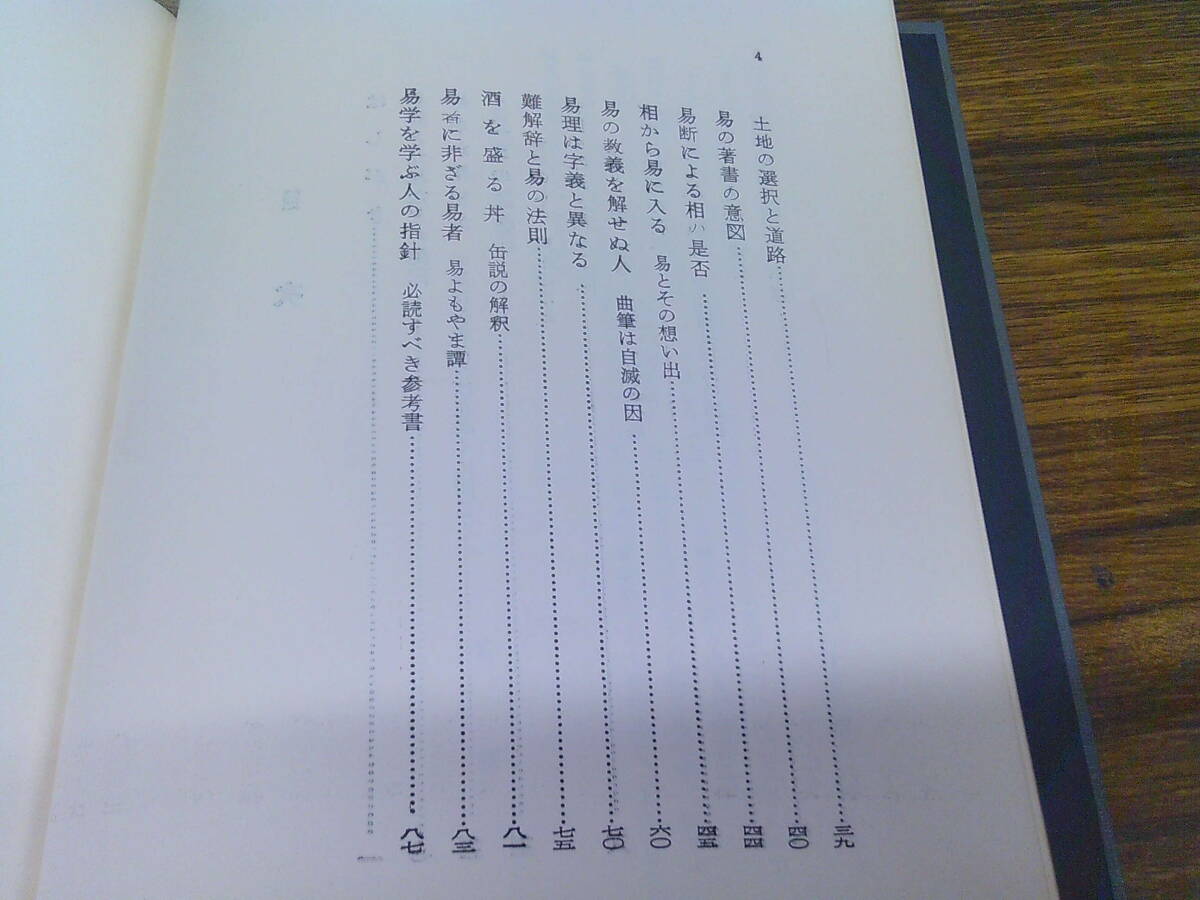 4
土地の選択と道路……三九
易の著書の意図……四〇
易断による相の是否……四四
相から易に入る　易とその想い出……四五
易の教義を解せぬ人　曲筆は自滅の因……六〇
易理は字義と異なる……七〇
難解辞と易の法則……七五
酒を盛る丼　缶説の解釈……八一
易者に非ざる易者　易よもやま譚……八三
易学を学ぶ人の指針　必読すべき参考書……八七